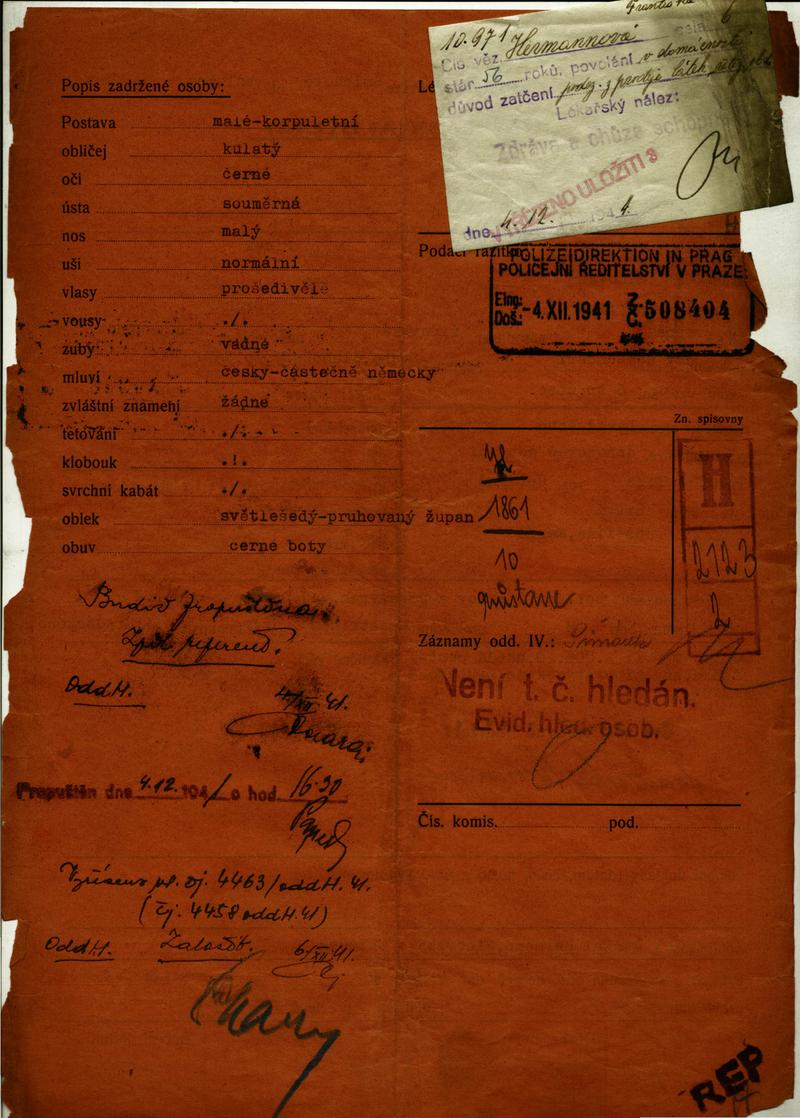 Popis zadržené osoby:
Postava malé-korpuletní
obličej kulatý
oči černé
ústa souměrná
nos malý
uši normální
vlasy prošedivělé
vousy ./.
zuby vadné
mluví česky-částečně německy
zvláštní znamení žádné
tetování ./.
klobouk ./.
svrchní kabát ./.
oblek světlešedý-pruhovaný župan
obuv cerne boty
Budiž propuštěna.
Zpět referent.
Odd H. 4/XII 41.
Propuštěn dne 4.12. 1941 o hod. 16·30
Vyřízeno čj. 4463/odd H. 41.
(čj. 4458 odd H. 41)
Odd H. Založit. 6/XII 41.
10.971
Čís. věz. Hermannová
stár 56 roků, povolání v domácnosti
důvod zatčení
Lékařský nález:
Zdráva a chůze schopna
VYŘÍZENO ULOŽITI 3
dne 4. 12. 194
Podací razítko
POLIZEIDIREKTION IN PRAG
POLICEJNÍ ŘEDITELSTVÍ V PRAZE
Eing.: Doš.: -4.XII.1941 Z. Č. 508404
Zn. spisovny
1861
10
H
2123
2
Záznamy odd. IV.:
Není t. č. hledán.
Evid. hled. osob.
Čís. komis. pod.
REP